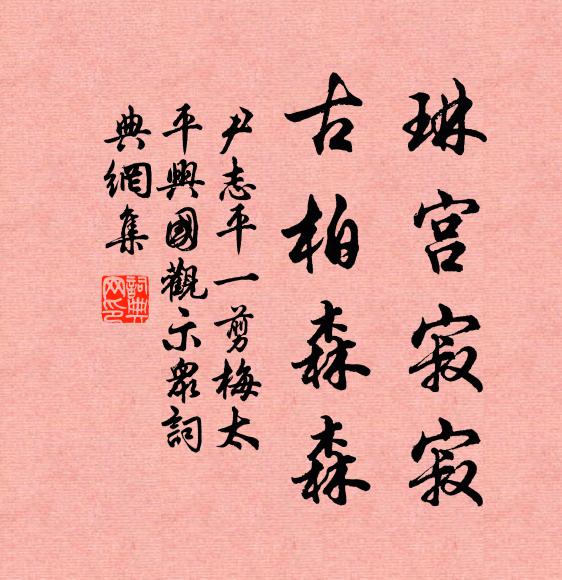 琳宫寂寂
古柏森森
尹志平一剪梅太
平興國觀示眾詞
典網集
詞典網印